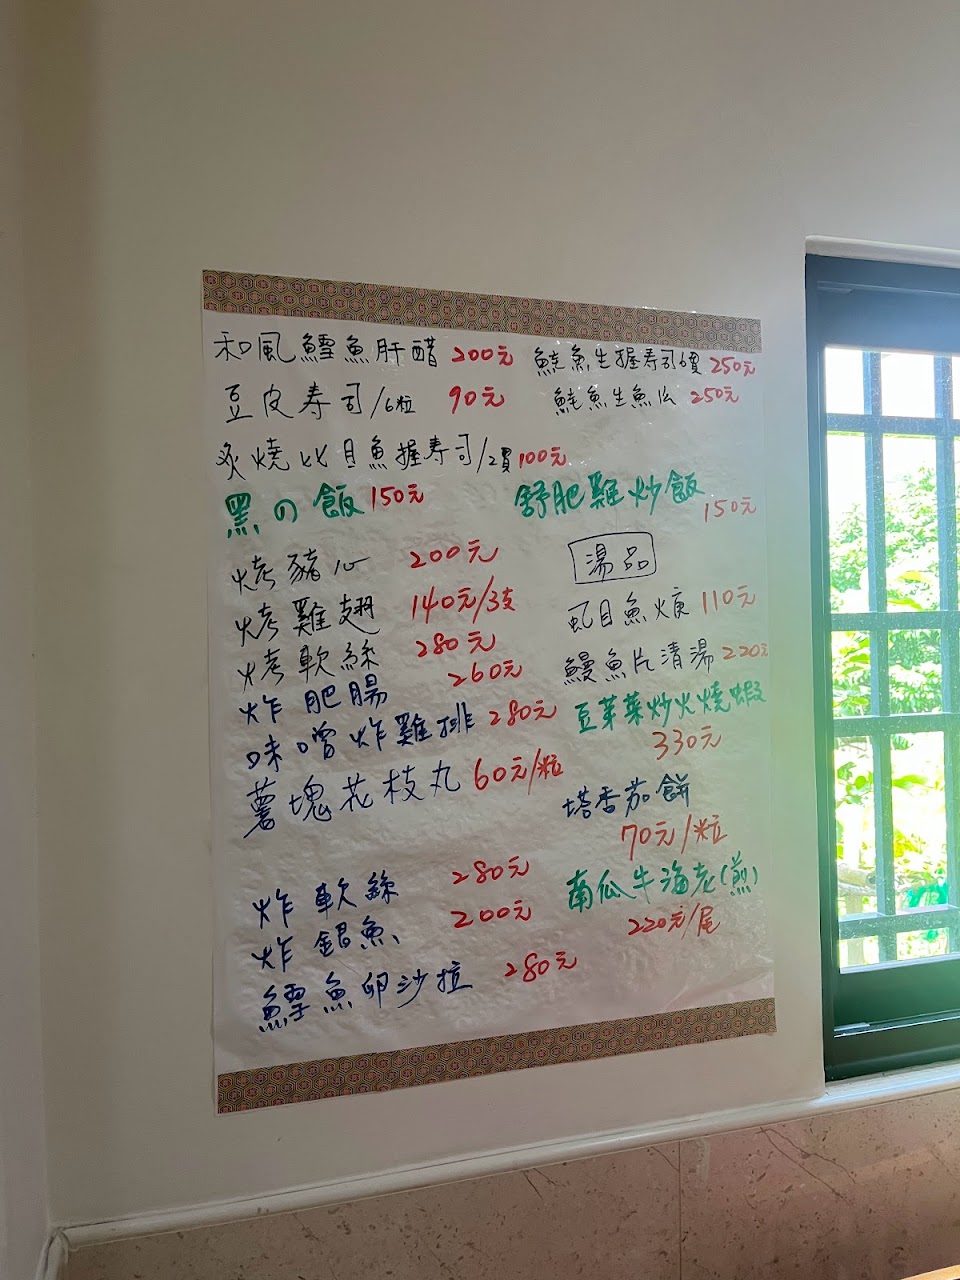 和風鱈魚肝醋 200元
豆皮壽司/6粒 90元
炙燒比目魚握壽司/2貫 100元
黑の飯 150元
烤豬心 200元
烤雞翅 140元/3支
烤軟絲 280元
炸肥腸 260元
味噌炸雞排 280元
薯塊花枝丸 60元/粒
炸軟絲 280元
炸銀魚 200元
鱈魚卵沙拉 280元
鮭魚生握壽司6貫 250元
鮭魚生魚片 250元
舒肥雞炒飯
150元
湯品
虱目魚焿 110元
鰻魚片清湯 220元
豆芽菜炒火燒蝦
330元
塔香茄餅
70元/粒
南瓜牛海老(煎)
220元/尾